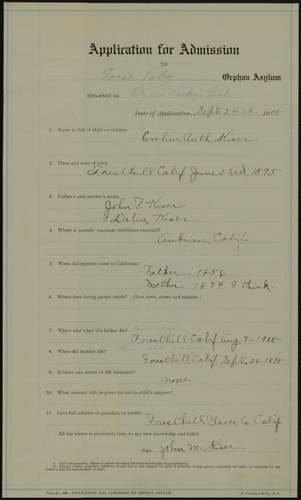 Application for Admission
TO
Grass Valley Orphan Asylum
Situated in Grass Valley, Cal
Date of Application, Sept 24th, 1908
1. Name in full of child or children.
Eveline Ruth Kiser
2. Place and date of birth.
Foresthill Calif June 23rd, 1895
3. Father's and mother's name.
John F. Kiser
Delia Kiser
4. Where is parents' marriage certificate recorded?
Auburn Calif.
5. When did parents come to California?
Father 1856
Mother, 1874. I think.
6. Where does living parent reside? (Give town, street and number.)
7. Where and when did father die?
Foresthill Calif Aug. 7-1908
8. When did mother die?
Foresthill Calif Sept. 20-1898
9. Is there any estate or life insurance?
none
10. What amount will be given for aid to child's support?
11. Give full address of guardian or parent.
Foresthill Placer Co Calif
All the above is absolutely true, to my best knowledge and belief.
Sign John M. Kiser